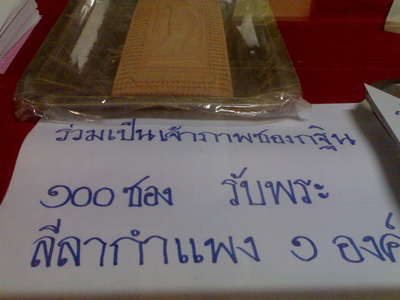 ร่วมเป็นเจ้าภาพซองกฐิน
๑๐๐ ซอง รับพระ
ลีลากำแพง ๑ องค์